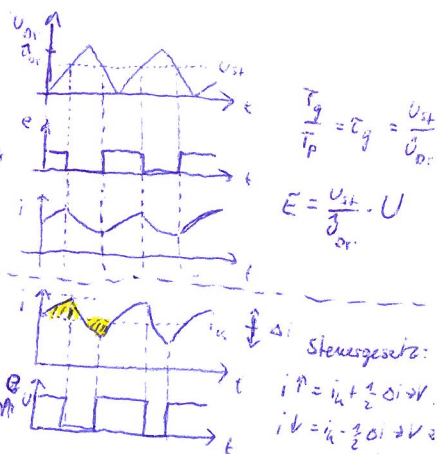 U_Dr
Û_Dr
U_st
t
e
t
T_g / T_p = τ_g = U_st / Û_Dr
i
t
E = U_st / Û_Dr · U
i
i_k
Δi
t
Steuergesetz:
i↑ = i_k + 1/2 Δi → V
i↓ = i_k - 1/2 Δi → V
e
U
t